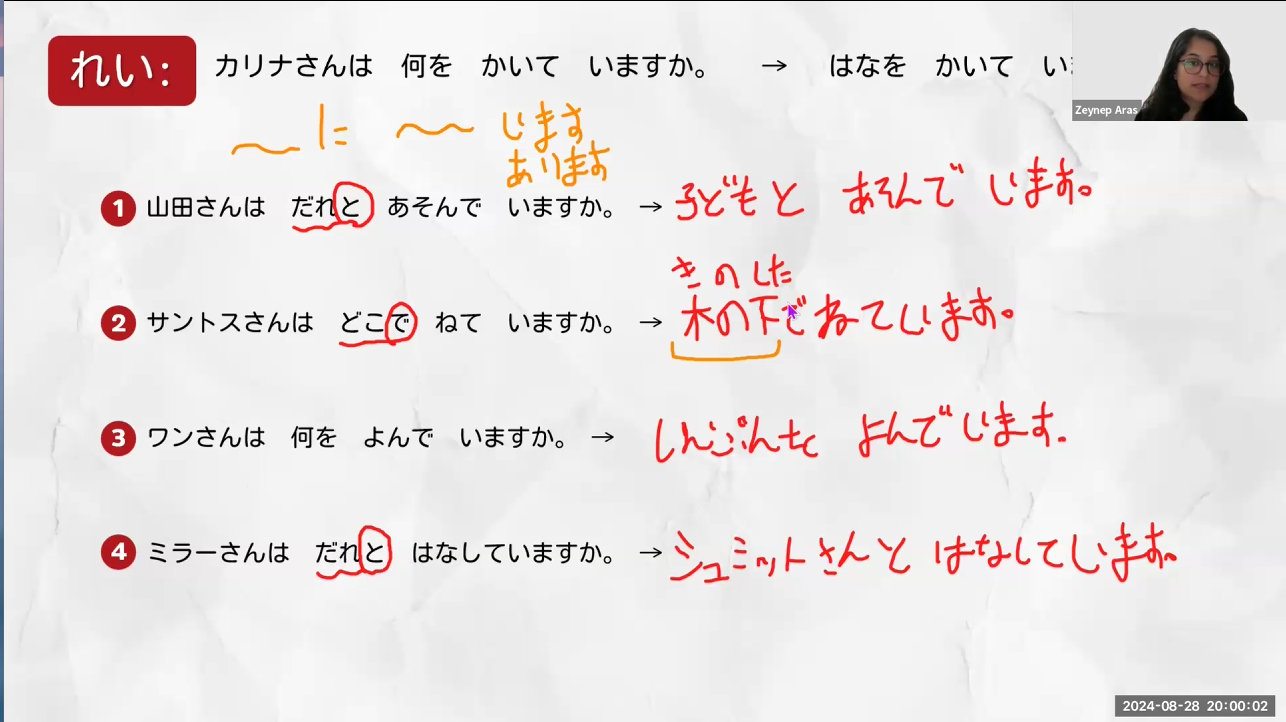 れい: カリナさんは 何を かいて いますか。 → はなを かいて い
Zeynep Aras
〜に 〜 います
あります
1 山田さんは だれと あそんで いますか。 → 子どもと あそんで います。
きのした
2 サントスさんは どこで ねて いますか。 → 木の下でねています。
3 ワンさんは 何を よんで いますか。 → しんぶんを よんでいます。
4 ミラーさんは だれと はなしていますか。 → シュミットさんと はなしています。
2024-08-28 20:00:02